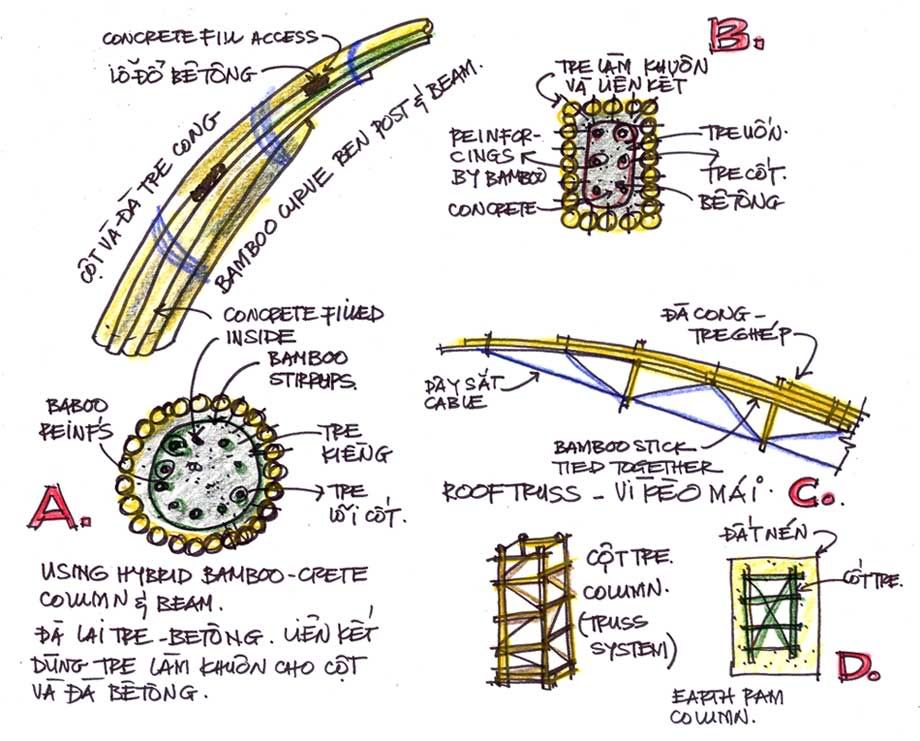 CONCRETE FILL ACCESS
LỖ ĐỔ BÊTÔNG
CỘT VÀ ĐÀ TRE CONG
BAMBOO CURVE BEN POST & BEAM.
CONCRETE FILLED
INSIDE
BAMBOO
STIRRUPS.
BABOO
REINF'S
TRE
KIỀNG
TRE
LÕI CỐT.
A.
USING HYBRID BAMBOO-CRETE
COLUMN & BEAM.
ĐÀ LAI TRE-BETÔNG. LIÊN KẾT
DÙNG TRE LÀM KHUÔN CHO CỘT
VÀ ĐÀ BÊTÔNG.
B.
TRE LÀM KHUÔN
VÀ LIÊN KẾT
REINFOR-
CINGS
BY BAMBOO
CONCRETE
TRE UỐN.
TRE CỐT.
BÊTÔNG
ĐÀ CONG-
TRE GHÉP
DÂY SẮT
CABLE
BAMBOO STICK
TIED TOGETHER
ROOF TRUSS - VÌ KÈO MÁI.
C.
CỘT TRE.
COLUMN.
(TRUSS
SYSTEM)
ĐẤT NÉN
CỐT TRE.
D.
EARTH RAM
COLUMN.